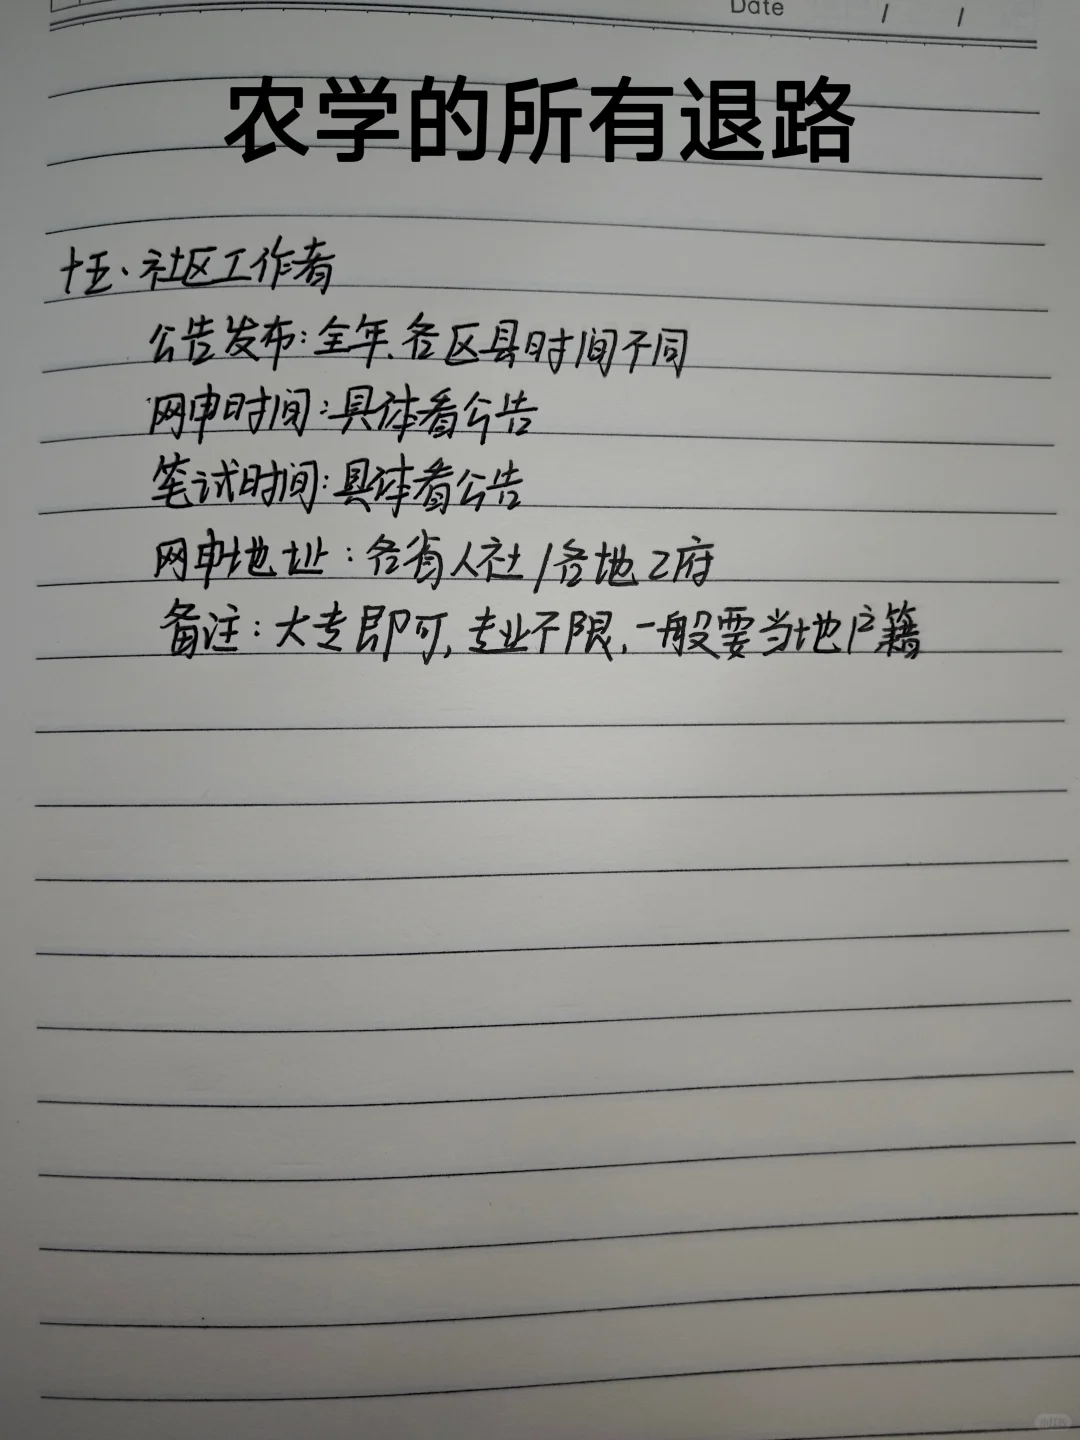 Date / /
农学的所有退路
十五、社区工作者
公告发布:全年、各区县时间不同
网申时间:具体看公告
笔试时间:具体看公告
网申地址:各省人社/各地Z府
备注:大专即可,专业不限,一般要当地户籍
小红书